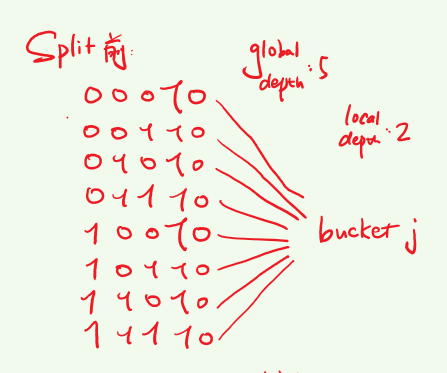 Split前:
global depth: 5
local depth: 2
00010
00110
01010
01110
10010
10110
11010
11110
bucket j